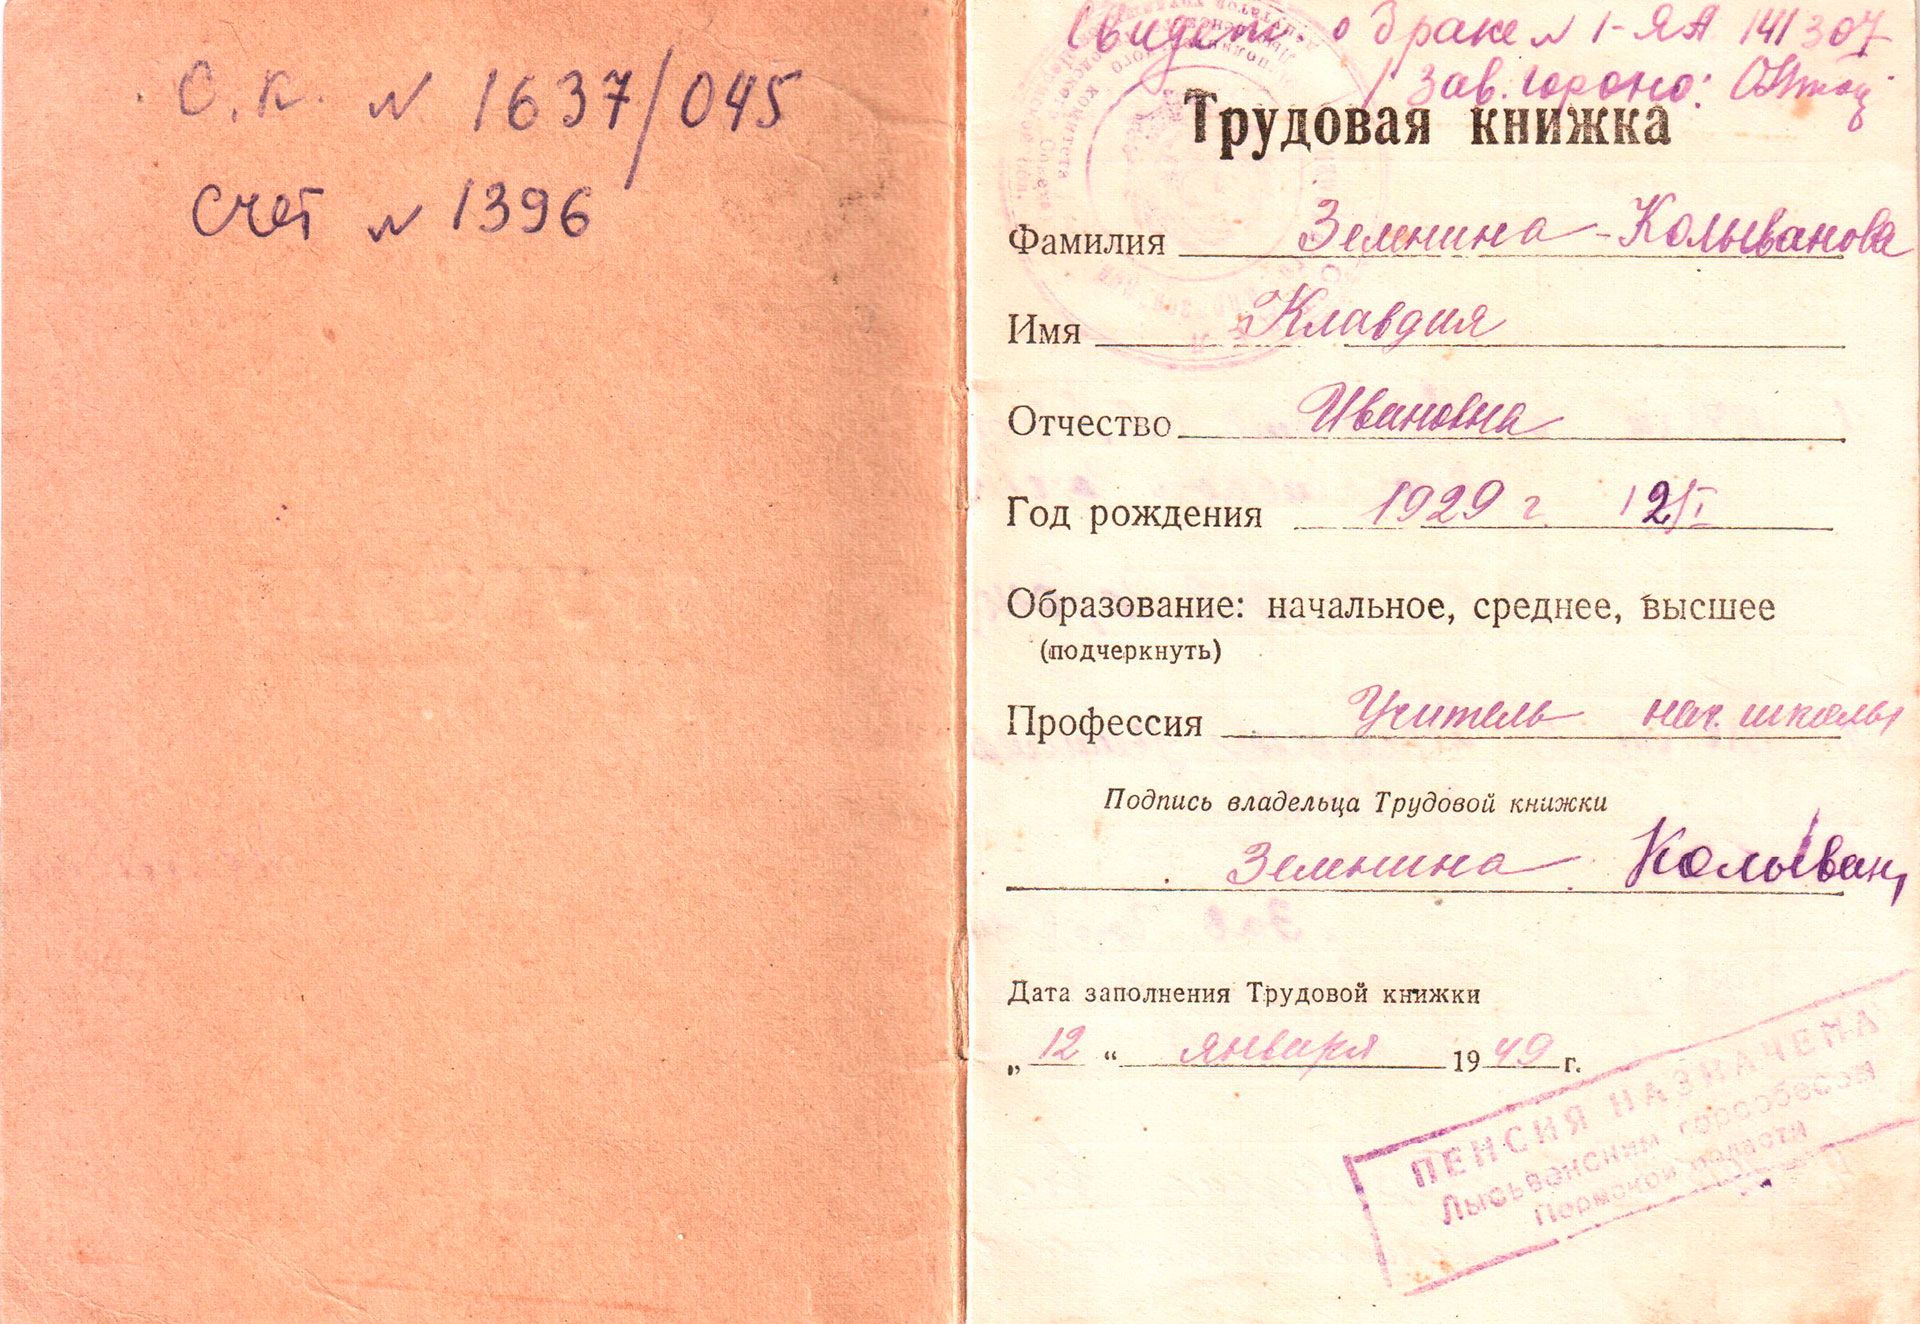 С.К. № 1637/045
счет № 1396
Свидет. о браке № 1-ЯА 141307
Зав. гороно:
Трудовая книжка
Фамилия Зеленина-Колыванова
Имя Клавдия
Отчество Ивановна
Год рождения 1929 г. 12/I
Образование: начальное, среднее, высшее
(подчеркнуть)
Профессия Учитель нач. школы
Подпись владельца Трудовой книжки
Зеленина Колыван
Дата заполнения Трудовой книжки
„ 12 “ января 1949 г.
ПЕНСИЯ НАЗНАЧЕНА
Лысьвенским горсобесом
Пермской области